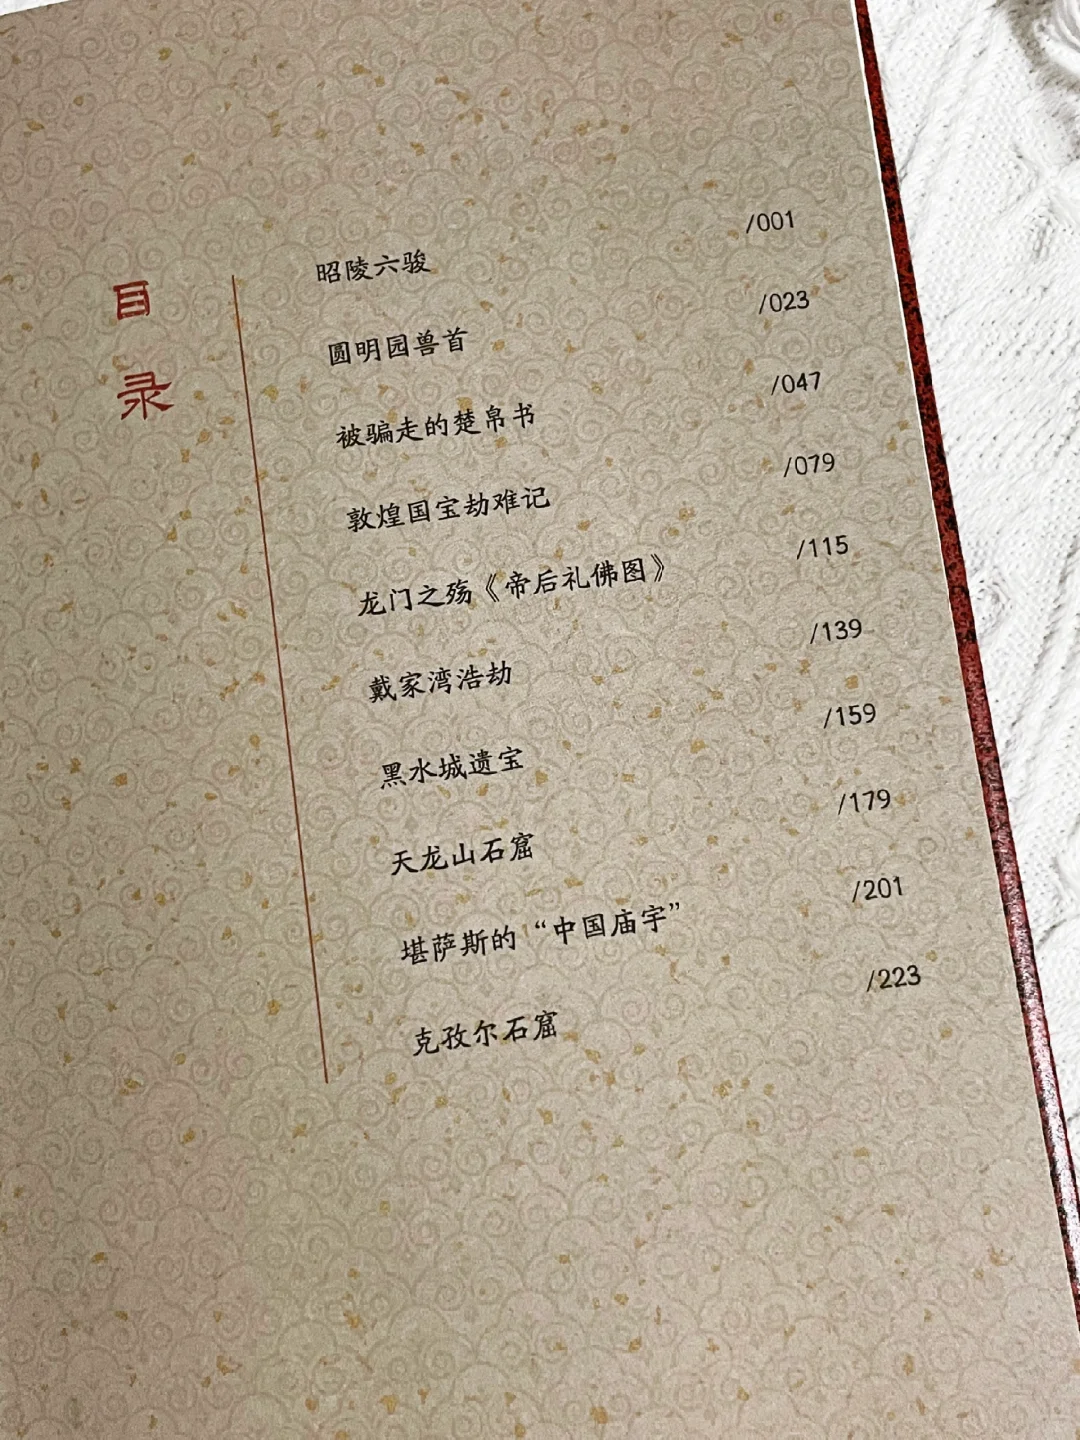 目录
昭陵六骏 /001
圆明园兽首 /023
被骗走的楚帛书 /047
敦煌国宝劫难记 /079
龙门之殇《帝后礼佛图》 /115
戴家湾浩劫 /139
黑水城遗宝 /159
天龙山石窟 /179
堪萨斯的“中国庙宇” /201
克孜尔石窟 /223